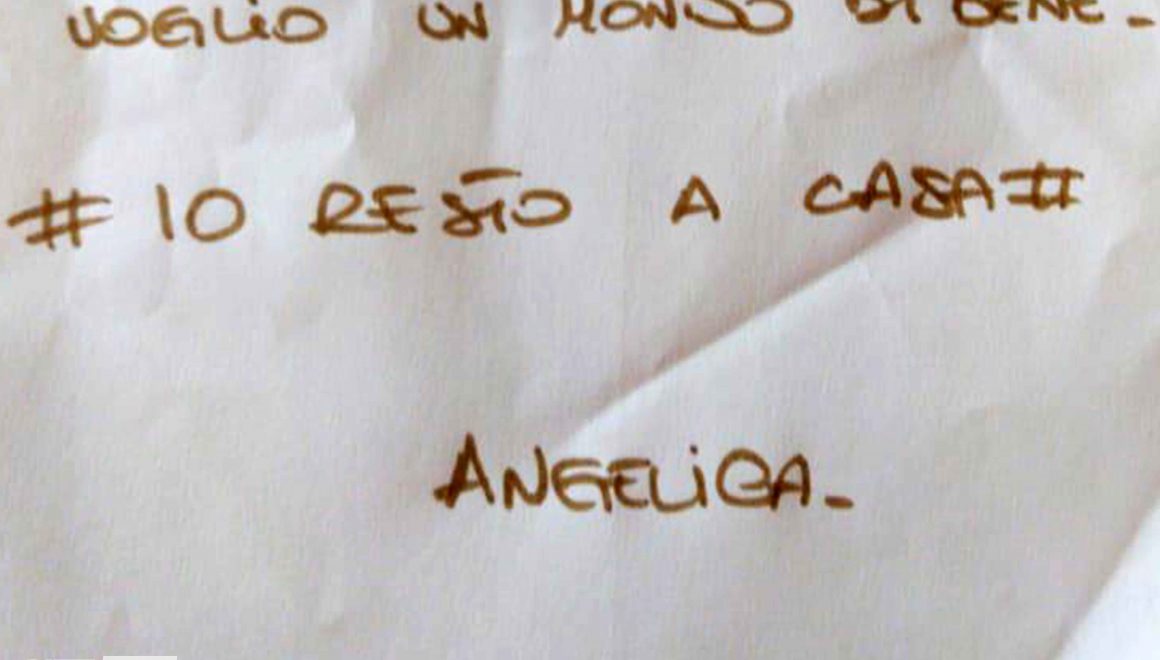 VOGLIO UN MONDO DI BENE-
# IO RESTO A CASA#
ANGELICA-